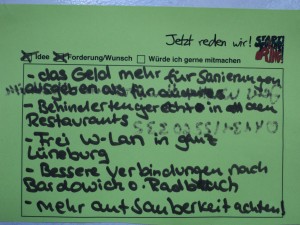 Jetzt reden wir!
Idee Forderung/Wunsch Würde ich gerne mitmachen
- das Geld mehr für Sanierungen
ausgeben als für
- Behindertengerechte in den
Restaurants
- Frei W-Lan in ganz
Lüneburg
- Bessere Verbindungen nach
Bardowick o. Radbruch
- mehr auf Sauberkeit achten!